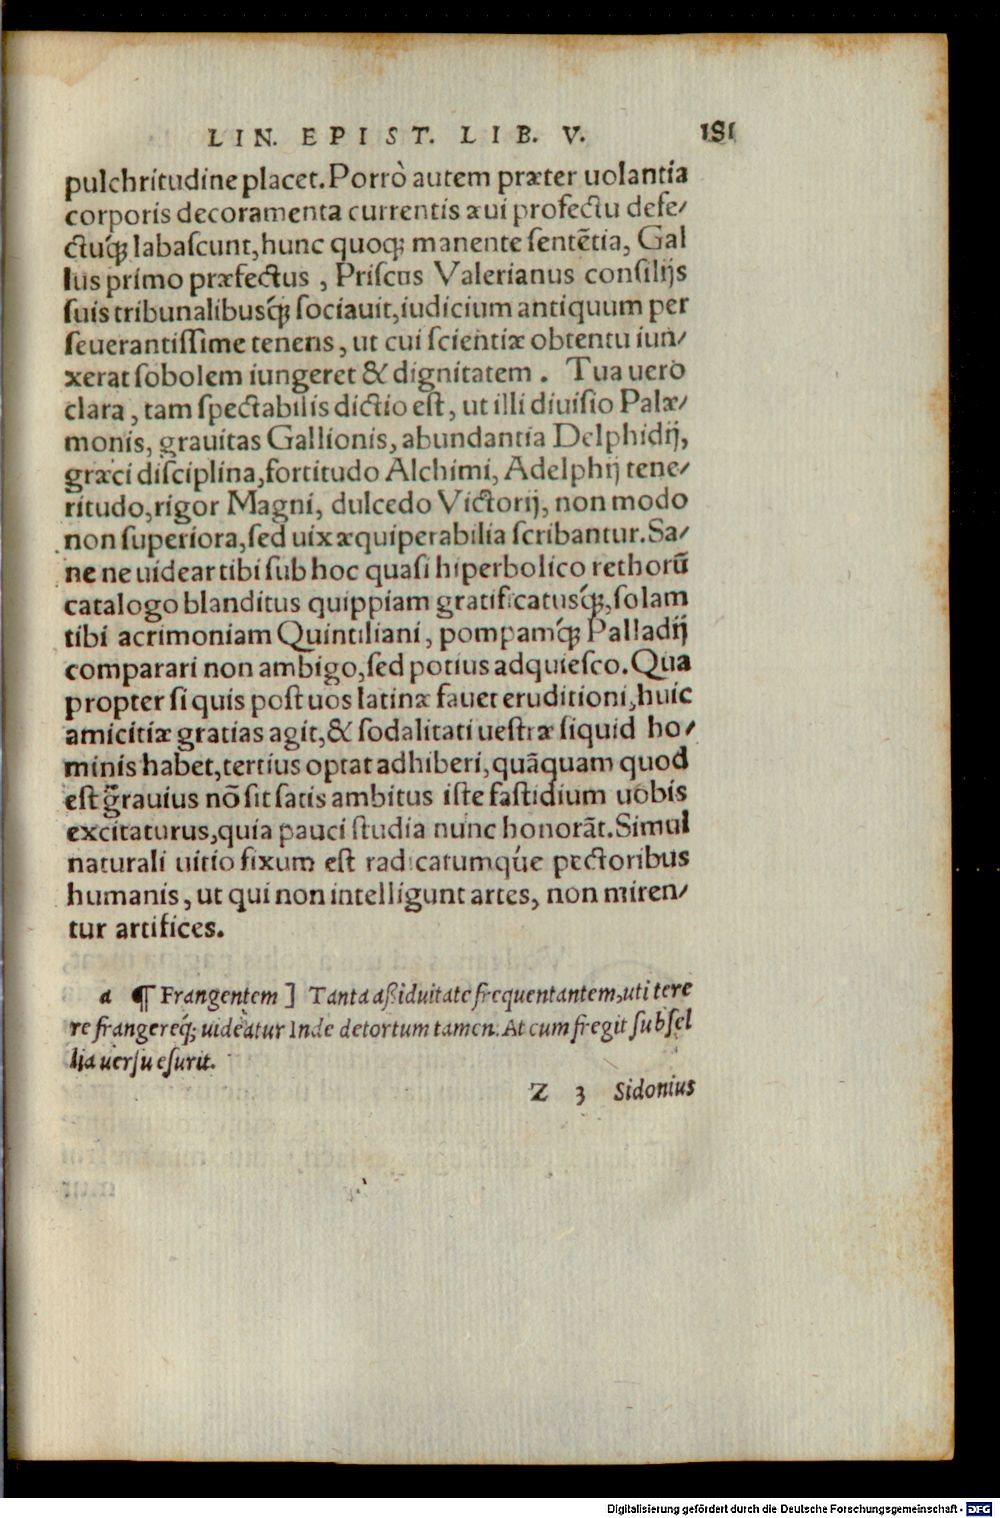 LIN. EPIST. LIB. V. 181
pulchritudine placet. Porrò autem præter uolantia
corporis decoramenta currentis æui profectu defe/
ctuq́ʒ labaſcunt, hunc quoqʒ manente ſentẽtia, Gal
lus primo præfectus , Priſcus Valerianus conſilijs
ſuis tribunalibusq́ʒ ſociauit, iudicium antiquum per
ſeuerantiſſime tenens, ut cui ſcientiæ obtentu iun/
xerat ſobolem iungeret & dignitatem . Tua uero
clara , tam ſpectabilis dictio eſt, ut illi diuiſio Palæ/
monis, grauitas Gallionis, abundantia Delphidij,
græci diſciplina, fortitudo Alchimi, Adelphij tene/
ritudo, rigor Magni, dulcedo Victorij, non modo
non ſuperiora, ſed uix æquiperabilia ſcribantur. Sa/
ne ne uidear tibi ſub hoc quaſi hiperbolico rethorũ
catalogo blanditus quippiam gratificatusq́ʒ, ſolam
tibi acrimoniam Quintiliani, pompamq́ʒ Palladij
comparari non ambigo, ſed potius adquieſco. Qua
propter ſi quis poſt uos latinæ fauet eruditioni, huic
amicitiæ gratias agit, & ſodalitati ueſtræ ſiquid ho/
minis habet, tertius optat adhiberi, quãquam quod
eſt grauius nõ ſit ſatis ambitus iſte faſtidium uobis
excitaturus, quia pauci ſtudia nunc honorãt. Simul
naturali uitio fixum eſt radicatumqúe pectoribus
humanis, ut qui non intelligunt artes, non miren/
tur artifices.
a ¶ Frangentem ] Tanta aßiduitate frequentantem, uti tere
re frangereq́ʒ uideatur Inde detortum tamen. At cum fregit ſubſel
lia uerſu eſurit.
Z 3 Sidonius
Digitalisierung gefördert durch die Deutsche Forschungsgemeinschaft - DFG